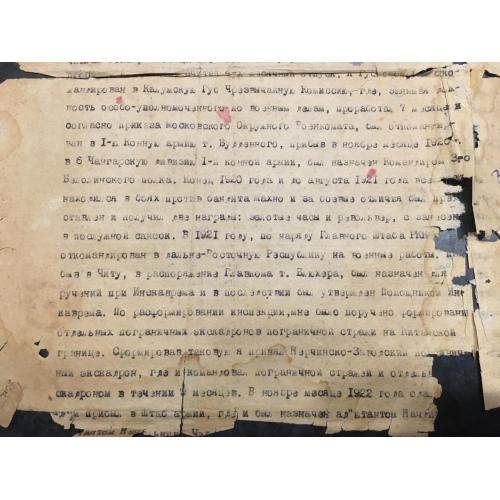 мандирован в Калужскую Губ Чрезвычайную Комиссию, где, занимая дол-
ность особо-уполномоченного по военным делам, проработал 7 месяцев и
согласно приказа Московского Окружного Военкомата, был откомандиро-
ван в 1-ю Конную армию т. Буденного, прибыв в ноябре месяце 1920
в 6 Чангарскую дивизию 1-й конной армии, был назначен Командиром 3-го
полка. Конец 1920 года и до августа 1921 года все
находился в боях против бандита махно и за боевые отличия был пред-
ставлен и получил две награды: золотые часы и револьвер, с занесен
в послужной список. В 1921 году, по наряду Главного штаба
откомандирован в Дальне-Восточную Республику на военные работы.
быв в Читу, в распоряжение Главкома т. Блюхера, был назначен для
ручений при Инскаврема и в последствии был утвержден Помощником Ин
каврема. По расформировании инспекции, мне было поручено формирование
отдельных пограничных эскадронов пограничной стражи на Китайской
границе. Сформировав таковую я принял Нерчинско-Заводский
ный эскадрон, где и командовал пограничной стражей и отдельн
скадроном в течении месяцев. В ноябре месяце 1922 года
прибыл в штаб армии, где и был назначен ад"ютантом Нач